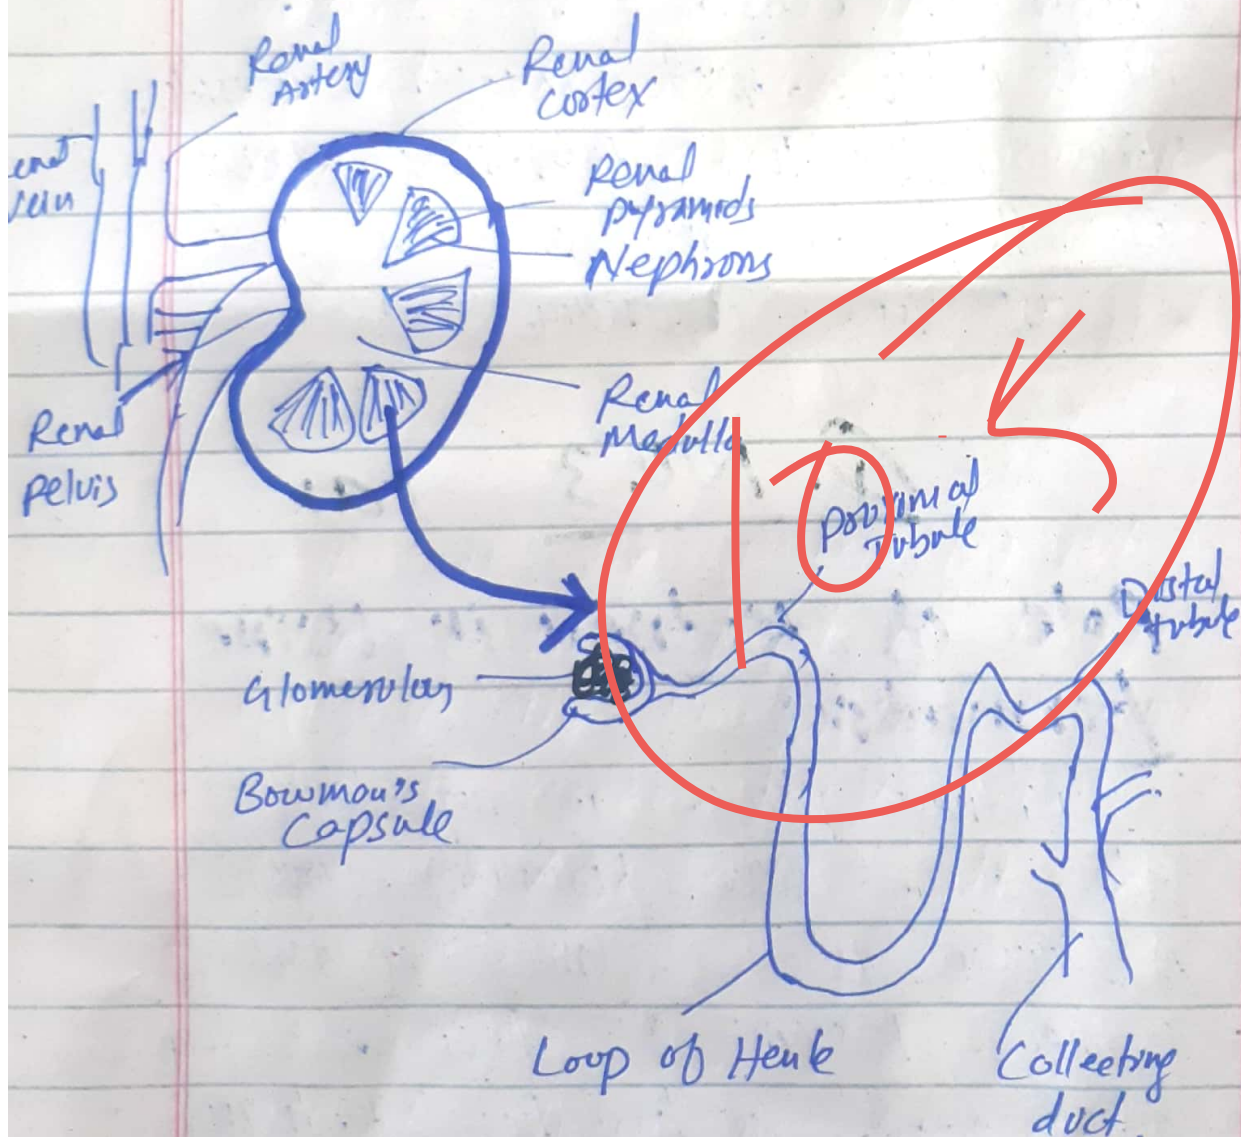 Renal
Artery
Renal
Cortex
Vein
Renal
pyramids
Nephrons
Renal
Medulla
Renal
pelvis
Proximal
Tubule
Distal
tubule
Glomerulus
Bowman's
Capsule
Loop of Henle
Collecting
duct